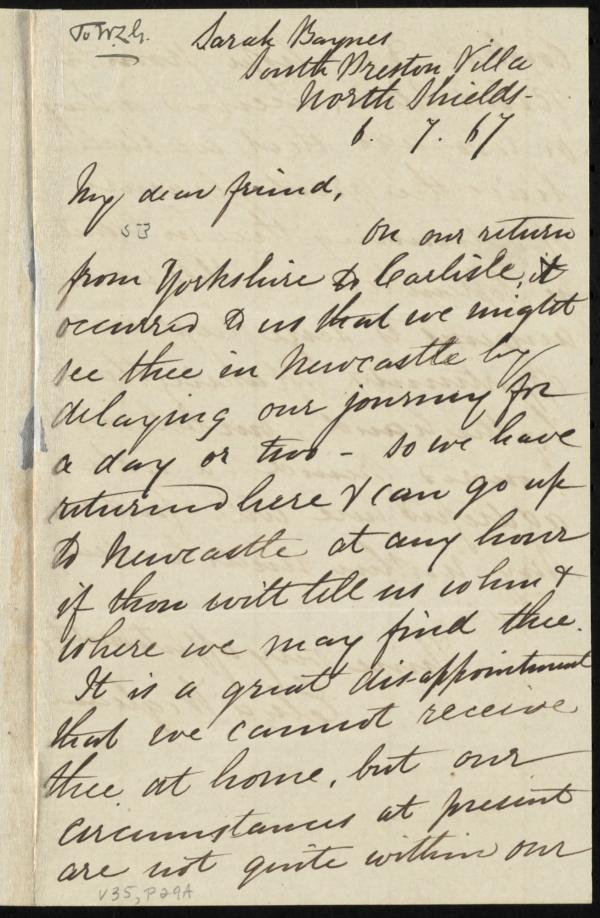 To W.L.G.
Sarah Baynes
South Preston Villa
North Shields -
6. 7. 67
My dear friend,
53
On our return
from Yorkshire to Carlisle, it
occurred to us that we might
see thee in Newcastle by
delaying our journey for
a day or two - so we have
returned here & can go up
to Newcastle at any hour
if thou will tell us when &
where we may find thee.
It is a great disappointment
that we cannot receive
thee at home, but our
circumstances at present
are not quite within our
V35, P29A